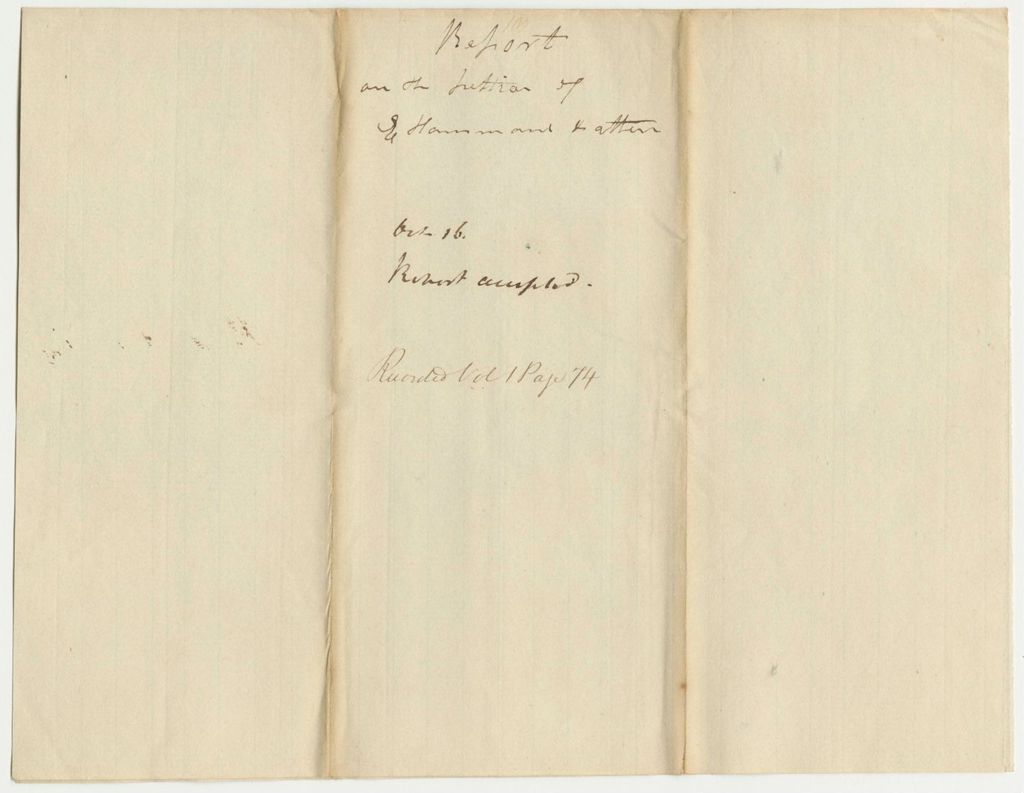 Report
on the petition of
E Hammond & others
Oct 16.
Report accepted.
Recorded Vol 1 Page 74